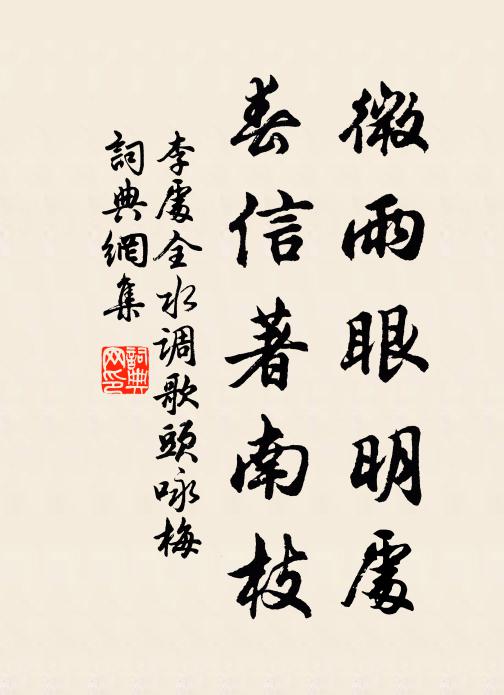 微雨眼明處
春信著南枝
李處全水调歌頭咏梅
詞典網集
詞典网印